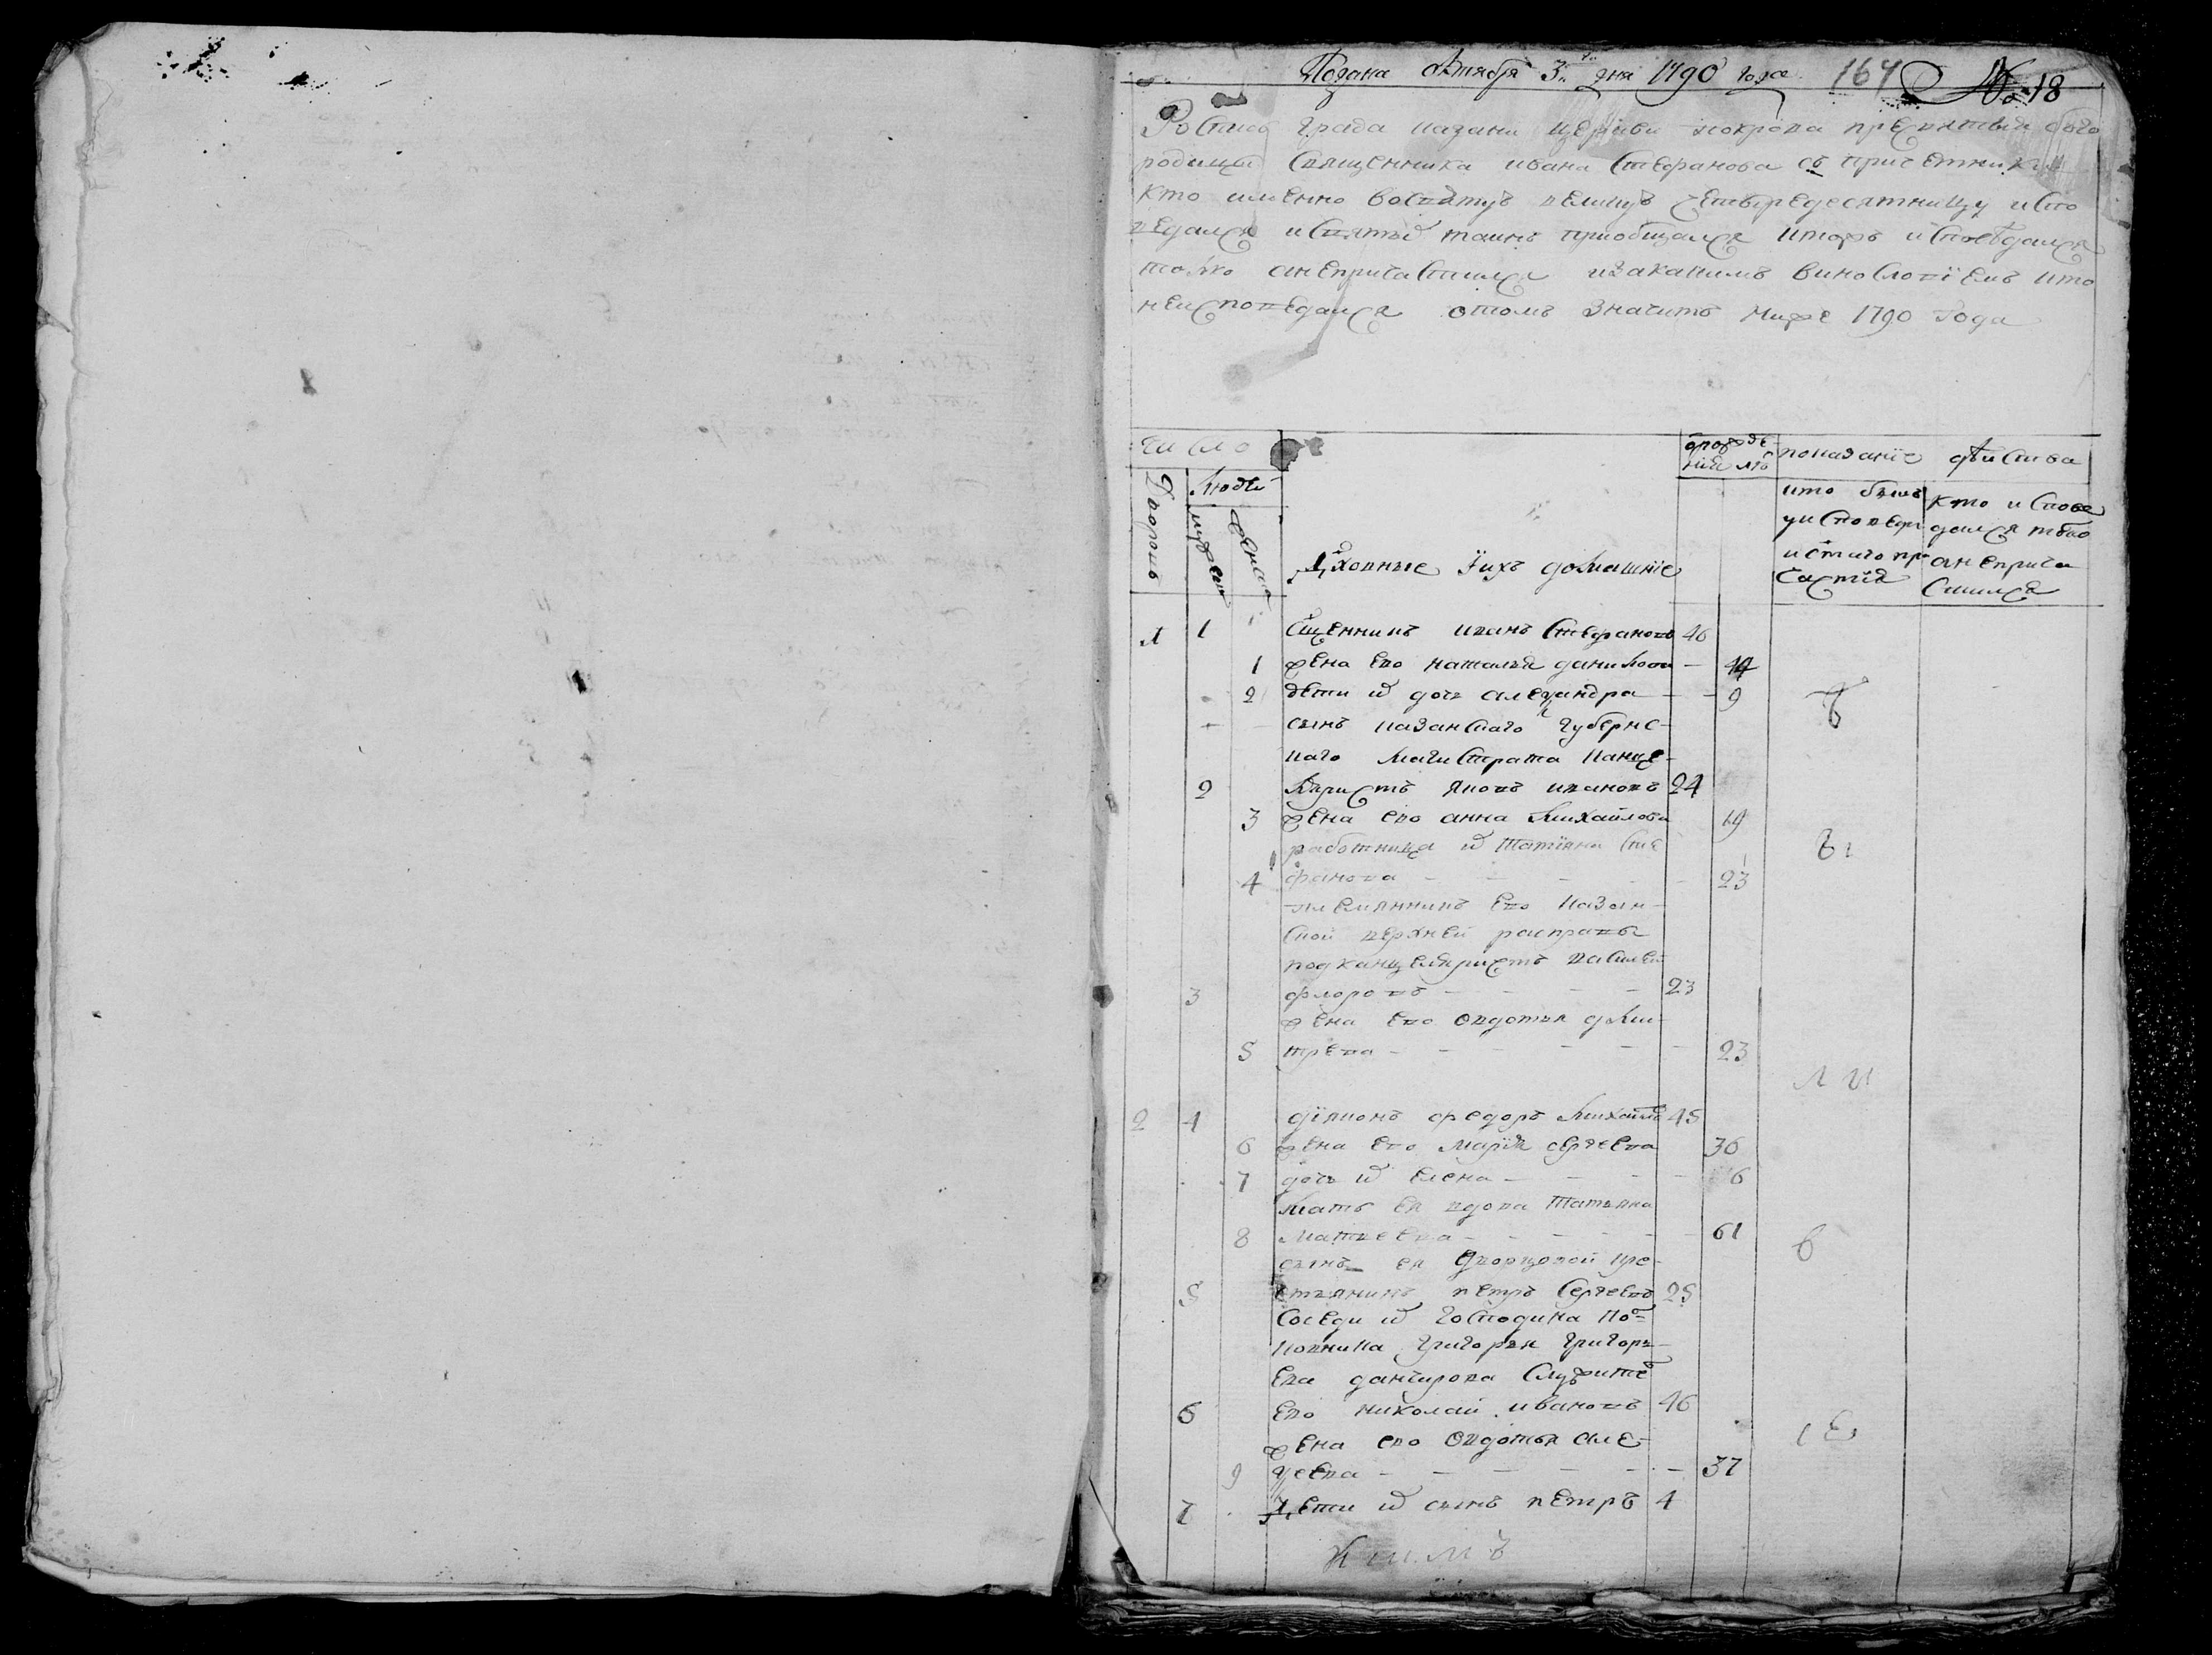 Подана октября 3: дня 1790 года 164 № 18
Роспись града казани церкви покрова пресвятыя бого
родицы священника ивана стефанова съ причетники
кто именно восвятую великую четыредесятницу испо
ведался исвятыхъ таинъ приобщался иктожъ исповѣдался
толко анепричастился изакакимъ винословїемъ икто
неисповедался отомъ значитъ ниже 1790 года
число
дворовъ
людей
мужеска
женска
дховные ïихъ домашнïе
отрожде
нiя лѣтъ
показанïе действа
кто былъ
уисповеди
истаго при
частïя
кто испове
дался токо
анеприча
стился
1 1 сщенникъ иванъ стефановъ 46
1 жена ево наталья данилова – 44
2 дети их дочь александра – – 9
сынъ казанскаго губернс-
каго магистрата канце-
2 ляристъ яковъ ивановъ 24
3 жена ево анна михайлова 19
работница их татïяна сте
4 фанова – – – – – 23
племянникъ ево казан-
ской верхней расправы
подканцеляристъ василей
3 флоровъ – – – – 23
жена ево овдотья дми-
5 трева – – – – – – 23
2 4 дïяконъ федоръ михайловъ 45
6 жена ево марïя сергеева 36
7 дочь их елена – – – – 6
мать ея вдова татьяна
8 матвеева – – – – – – 61
сынъ ея дворцовой кре-
5 стьянинъ петръ сергеевъ 25
соседи их господина пол-
ковника григорья григорь-
ева служители
6 ево николай ивановъ 46
жена ево овдотья але-
9 ѯеева – – – – – – 37
7 дети их сынъ петръ 4